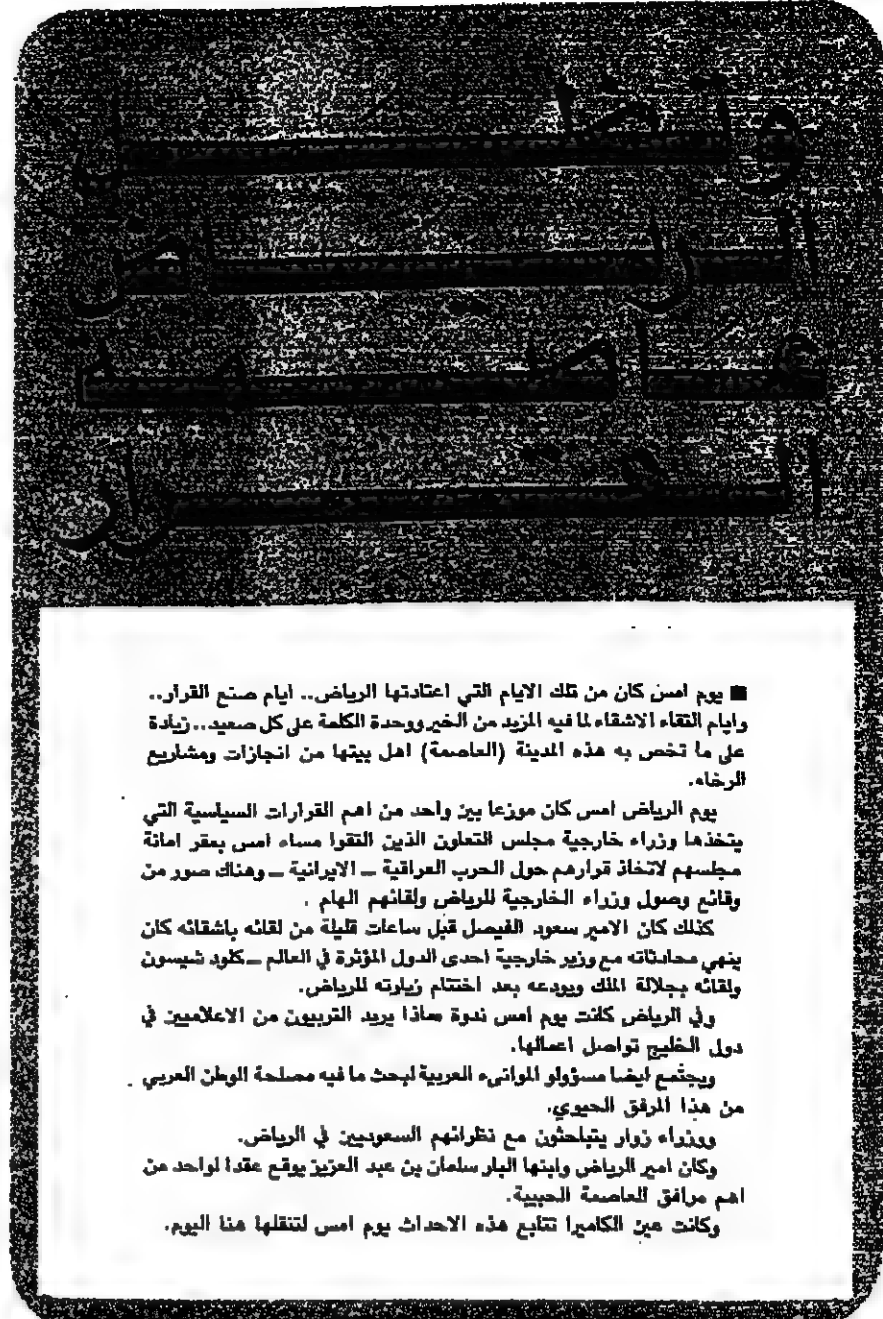 وتظل
الرياض
عاصمة
القرار
■ يوم امس كان من تلك الايام التي اعتادتها الرياض.. ايام صنع القرار..
وايام التقاء الاشقاء لما فيه المزيد من الخير ووحدة الكلمة على كل صعيد.. زيادة
على ما تخص به هذه المدينة (العاصمة) اهل بيتها من انجازات ومشاريع
الرخاء.
يوم الرياض امس كان موزعا بين واحد من اهم القرارات السياسية التي
يتخذها وزراء خارجية مجلس التعاون الذين التقوا مساء امس بمقر امانة
مجلسهم لاتخاذ قرارهم حول الحرب العراقية ــ الايرانية ــ وهناك صور من
وقائع وصول وزراء الخارجية للرياض ولقائهم الهام .
كذلك كان الامير سعود الفيصل قبل ساعات قليلة من لقائه باشقائه كان
ينهي محادثاته مع وزير خارجية احدى الدول المؤثرة في العالم ــ كلود شيسون
ولقائه بجلالة الملك ويودعه بعد اختتام زيارته للرياض.
وفي الرياض كانت يوم امس ندوة ماذا يريد التربيون من الاعلاميين في
دول الخليج تواصل اعمالها.
ويجتمع ايضا مسؤولو الموانىء العربية لبحث ما فيه مصلحة الوطن العربي
من هذا المرفق الحيوي.
ووزراء زوار يتباحثون مع نظرائهم السعوديين في الرياض.
وكان امير الرياض وابنها البار سلمان بن عبد العزيز يوقع عقدا لواحد من
اهم مرافق العاصمة الحبيبة.
وكانت عين الكاميرا تتابع هذه الاحداث يوم امس لتنقلها هنا اليوم.